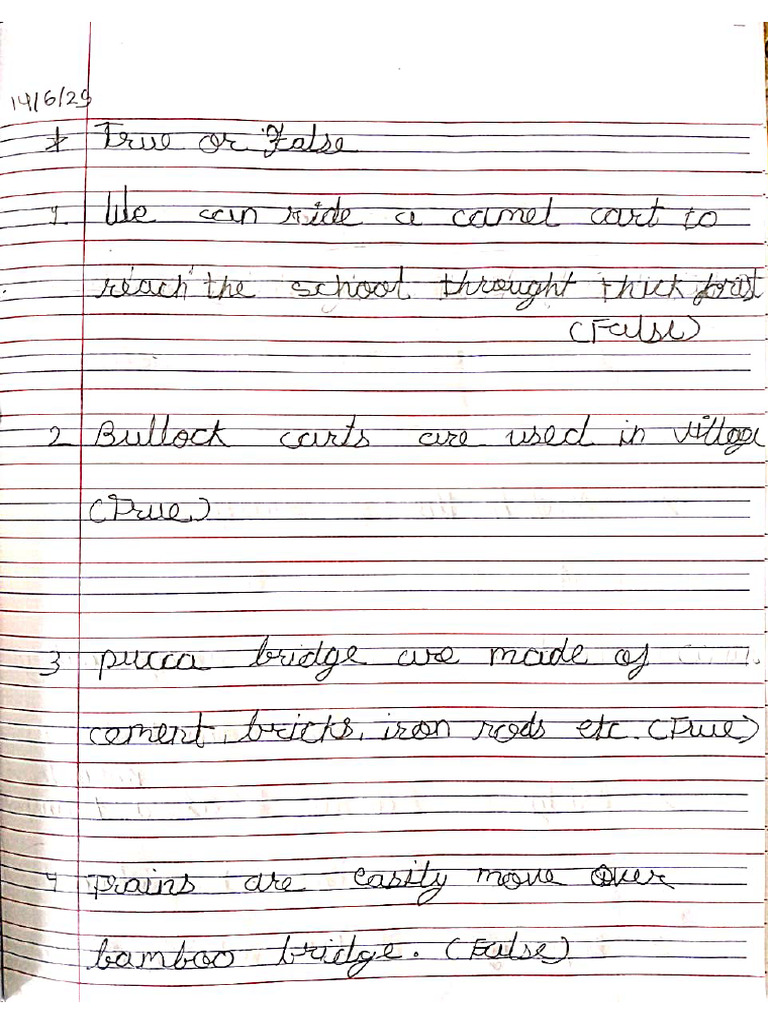 14/6/23
* True or False
1. We can ride a camel cart to
reach the school throught thick forest
(False)
2 Bullock carts are used in village
(True)
3 pucca bridge are made of
cement, bricks, iron rods etc. (True)
4 Trains are easitly move over
bamboo bridge. (False)